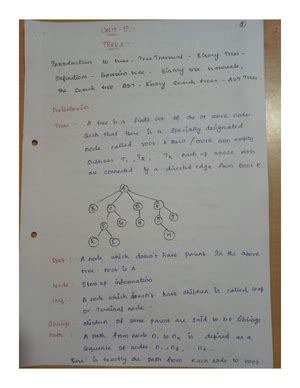 UNIT-IV
TREES
Introduction to trees - Tree Traversal - Binary Tree -
Definition - Expression tree - Binary tree traversals,
the Search tree ADT - Binary Search trees - AVL Trees
Preliminaries
Tree :- A tree is a finite set of one or more nodes
such that there is a specially designated
node called root & zero / more non empty
subtrees T1, T2, Tk each of whose roots
are connected by a directed edge from Root R
A
Root : A node which doesn't have parent. In the above
tree root is A
Node : Item of information
Leaf : A node which doesn't have children is called leaf
or Terminal node.
Siblings : Children of same parent are said to be Siblings
Path : A path from node n1 to nk is defined as a
sequence of nodes n1, n2, nk
There is exactly one path from each node to root.